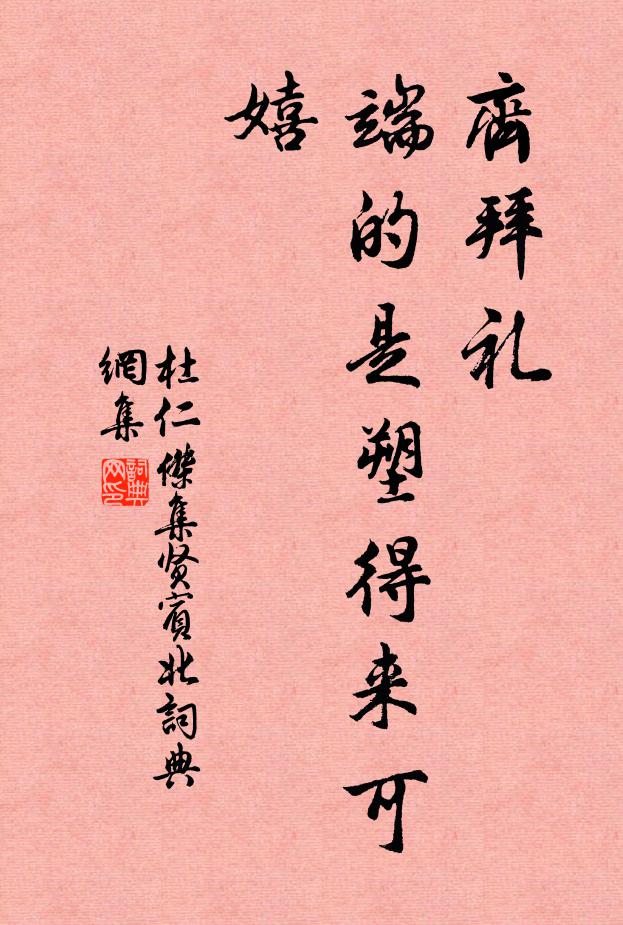 齊拜礼
端的是塑得来可
嬉
杜仁傑集贤賓北詞典
網集
詞典
网印